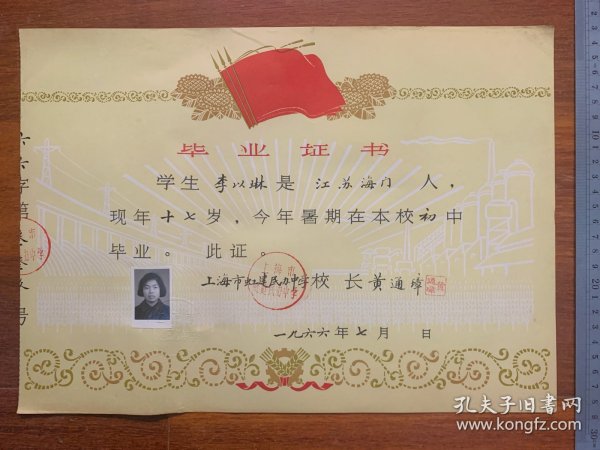 毕业证书
学生李以琳是江苏海门人，
现年十七岁，今年暑期在本校初中
毕业。此证。
上海市虹建民办中学校长黄通璋
一九六六年七月 日
六六字第
号
孔夫子旧书网
book.kongfz.com